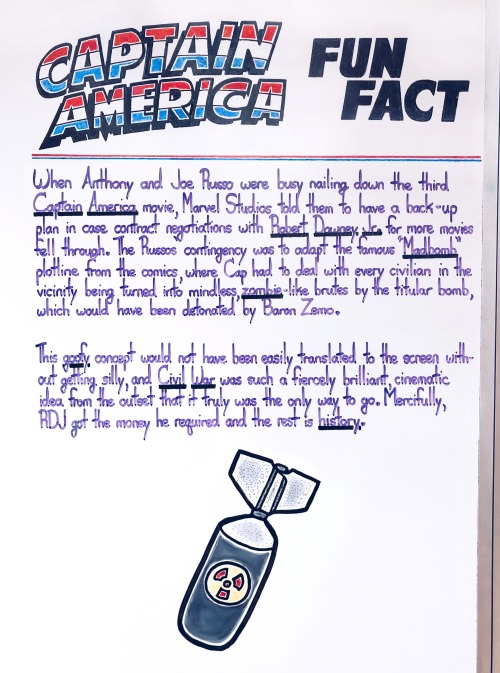 CAPTAIN
AMERICA
FUN
FACT
When Anthony and Joe Russo were busy nailing down the third
Captain America movie, Marvel Studios told them to have a back-up
plan in case contract negotiations with Robert Downey, Jr. for more movies
fell through. The Russos contingency was to adapt the famous "Madbomb"
plotline from the comics, where Cap had to deal with every civilian in the
vicinity being turned into mindless, zombie-like brutes by the titular bomb,
which would have been detonated by Baron Zemo.
This goofy concept would not have been easily translated to the screen with-
out getting silly, and Civil War was such a fiercely brilliant, cinematic
idea from the outset that it truly was the only way to go. Mercifully,
RDJ got the money he required and the rest is history.